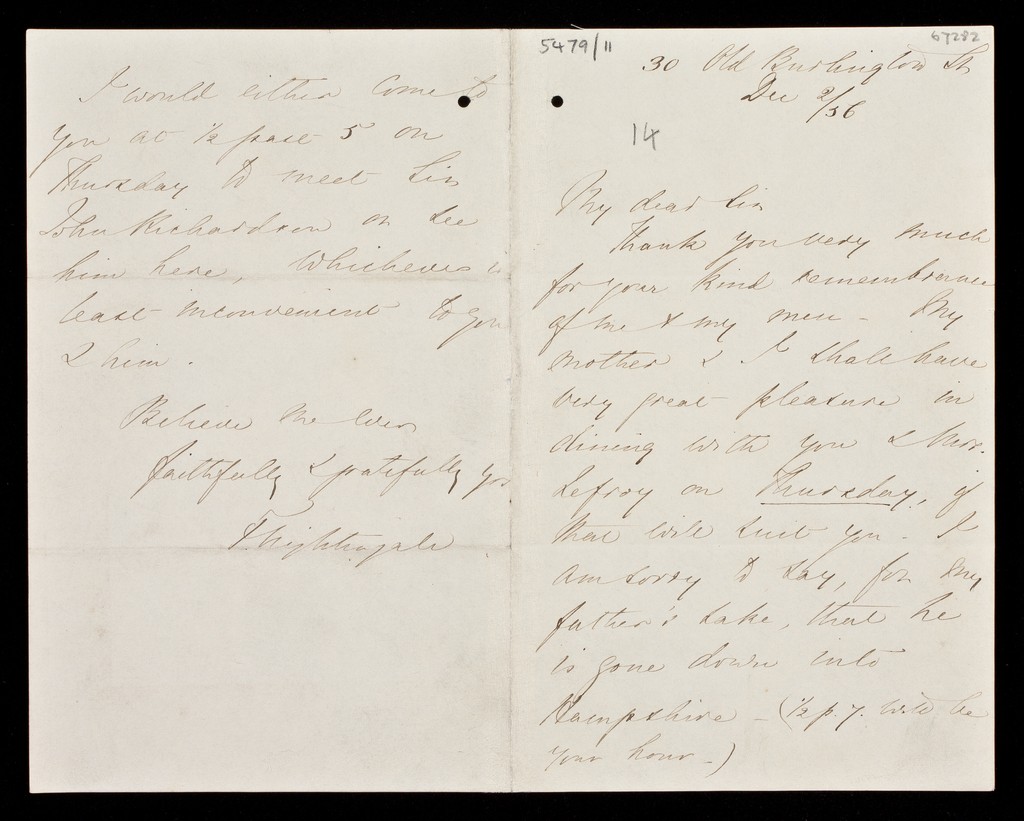 5479/11
67282
30 Old Burlington St
Dec 2/56
14
My dear Sir
Thank you very much
for your kind remembrance
of me & my men - My
mother & I shall have
very great pleasure in
dining with you & Mrs.
Lefroy on Thursday, if
that will suit you - I
am sorry to say, for my
father's sake, that he
is gone down into
Hampshire - (½ p. 7. will be
your hour -)
I would either come to
you at ½ past 5 on
Thursday to meet Sir
John Richardson or see
him here, whichever is
least inconvenient to you
& him.
Believe me ever
faithfully & gratefully yrs
F. Nightingale